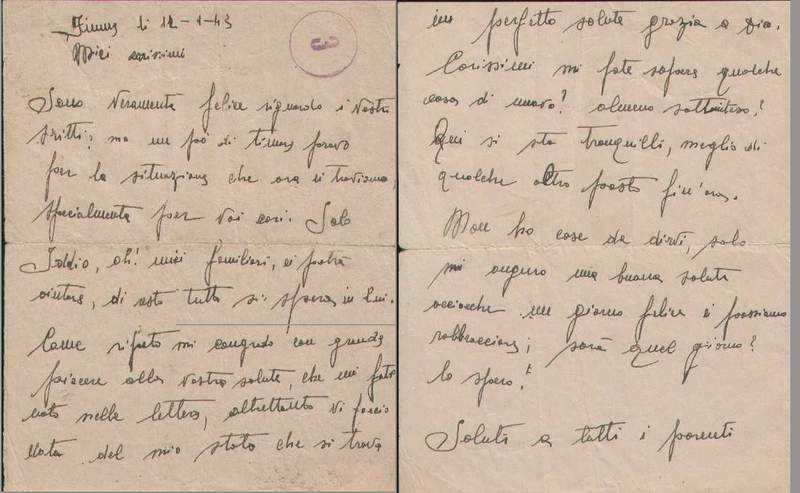 Fiume li 12-1-43
Miei carissimi
3
Sono veramente felice riguardo i vostri
scritti; ma un pó di timore provo
per la situazione che ora ci troviamo,
specialmente per voi cari. Solo
Iddio, oh! miei familiari, ci potrà
aiutare, di noto tutto si spera in Lui.
Come ripeto mi congrado con grande
piacere alla vostra salute, che mi fate
noto nella lettera, altrettanto vi faccio
nota del mio stato che si trova
in perfetta salute grazia a Dio.
Carissimi mi fate sapere qualche
cosa di nuovo? almeno sottinteso!
Qui si sta tranquilli, meglio di
qualche altro posto fin'ora.
Non ho cose da dirvi, solo
mi auguro una buona salute
acciocche un giorno felice ci possiamo
rabbracciare; sarà quel giorno?
lo spero!
Saluti a tutti i parenti